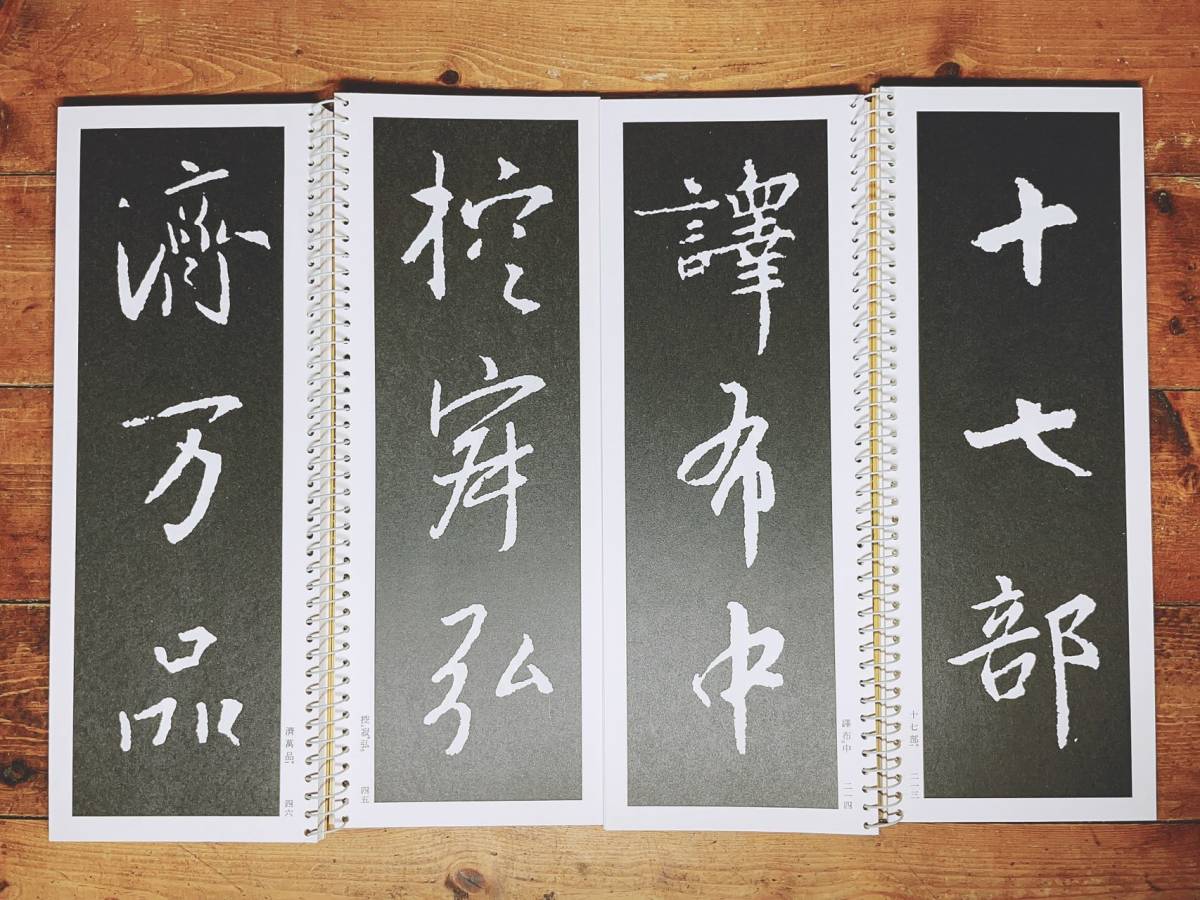 十七部
十七部
二一三
譯布中
譯布中
二一四
控寂弘
控寂弘
四五
濟万品
濟萬品
四六